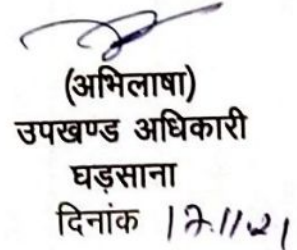 (अभिलाषा)
उपखण्ड अधिकारी
घड़साना
दिनांक 17.11.21